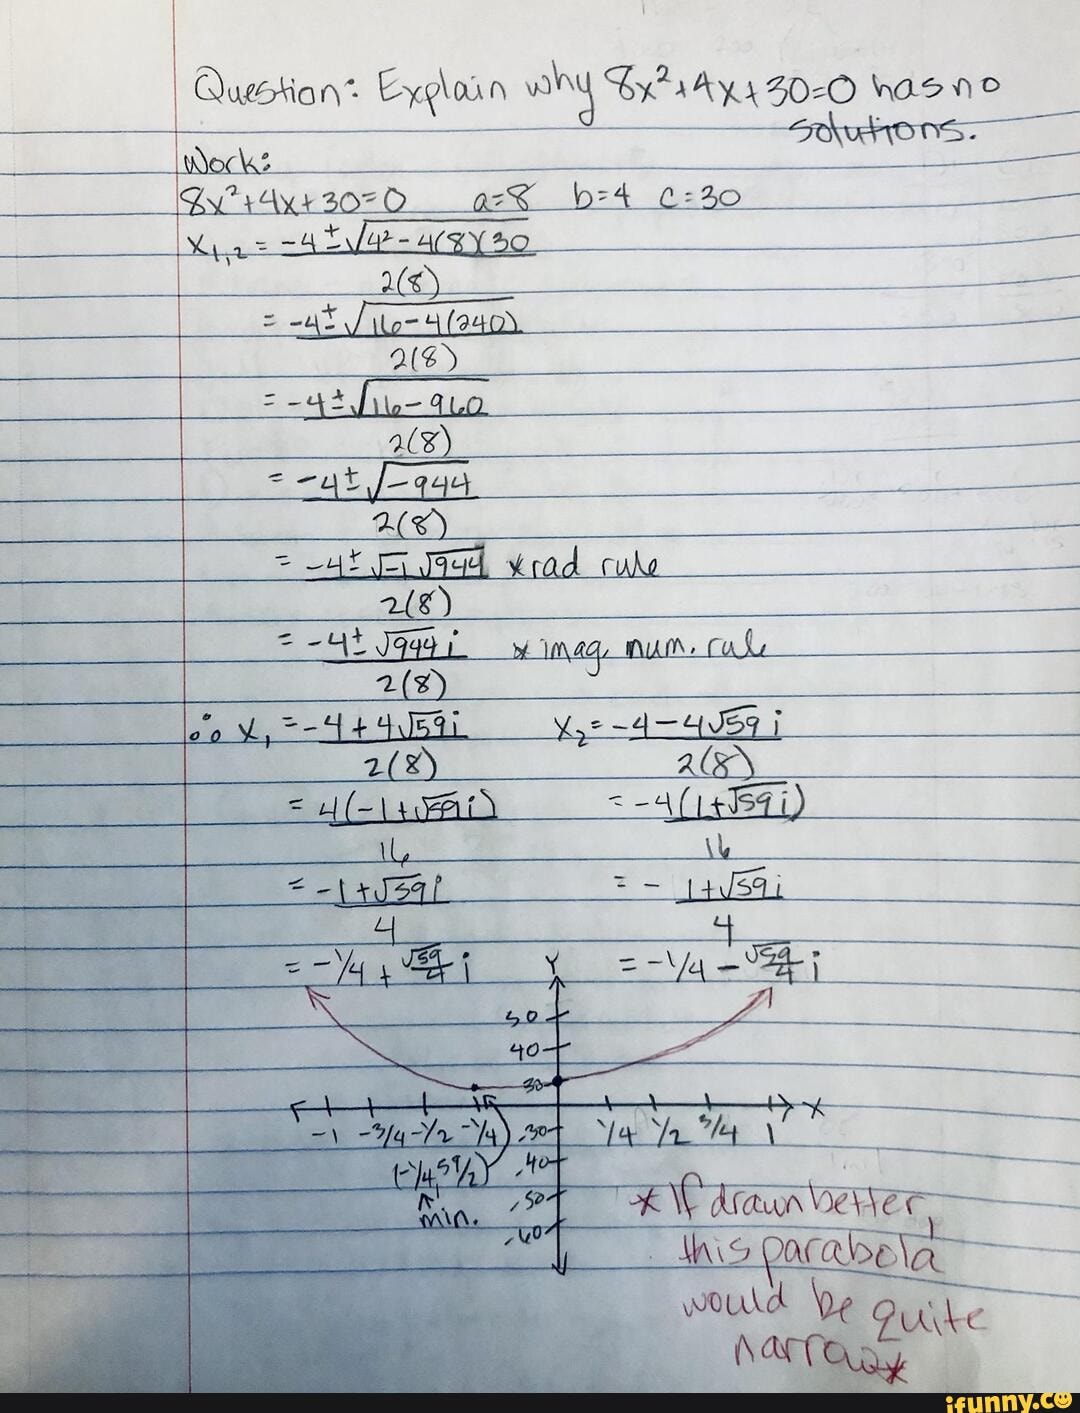 Question: Explain why 8x²+4x+30=0 has no
solutions.
Work:
8x²+4x+30=0 a=8 b=4 c=30
x₁,₂ = -4±√4²-4(8)(30
2(8)
= -4±√16-4(240)
2(8)
= -4±√16-960
2(8)
= -4±√-944
2(8)
= -4±√-1 √944 *rad rule
2(8)
= -4±√944 i *imag. num. rule
2(8)
∴ x₁ = -4+4√59i x₂= -4-4√59 i
2(8) 2(8)
= 4(-1+√59i) = -4(1+√59i)
16 16
= -1+√59i = - 1+√59i
4 4
= -1/4 + √59/4 i = -1/4 - √59/4 i
Y
50
40
30
X
-1 -3/4 -1/2 -1/4 -30 1/4 1/2 3/4 1
(-1/4, 59/2) -40
min. -50
-60
*If drawn better,
this parabola
would be quite
narrow*
ifunny.co